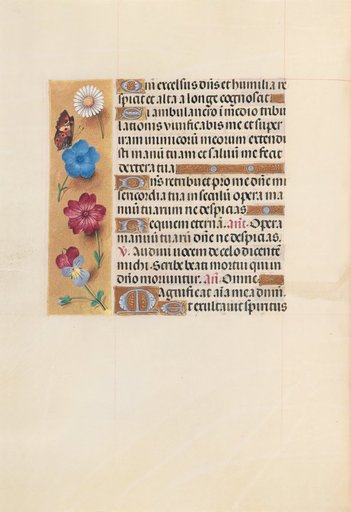 Qm̄ excelsus dn̄s et humilia re
spicit et alta a longe cognoscit
Si ambulauero in medio tribu
lationis viuificabis me et super
iram inimicoꝝ meorum extendi
sti manū tuam et saluū me fecit
dextera tua
Dn̄s retribuet pro me dn̄e mi
sericordia tua in seculū opera ma
nuū tuarum ne despicias
Requiem eternā. añ. Opera
manuū tuarū dn̄e ne despicias.
V. Audiui vocem de celo dicentē
michi. Scribe beati mortui qui in
dn̄o moriuntur. Añ. Omne.
Magnificat aīa mea dn̄m.
Et exultauit spiritus